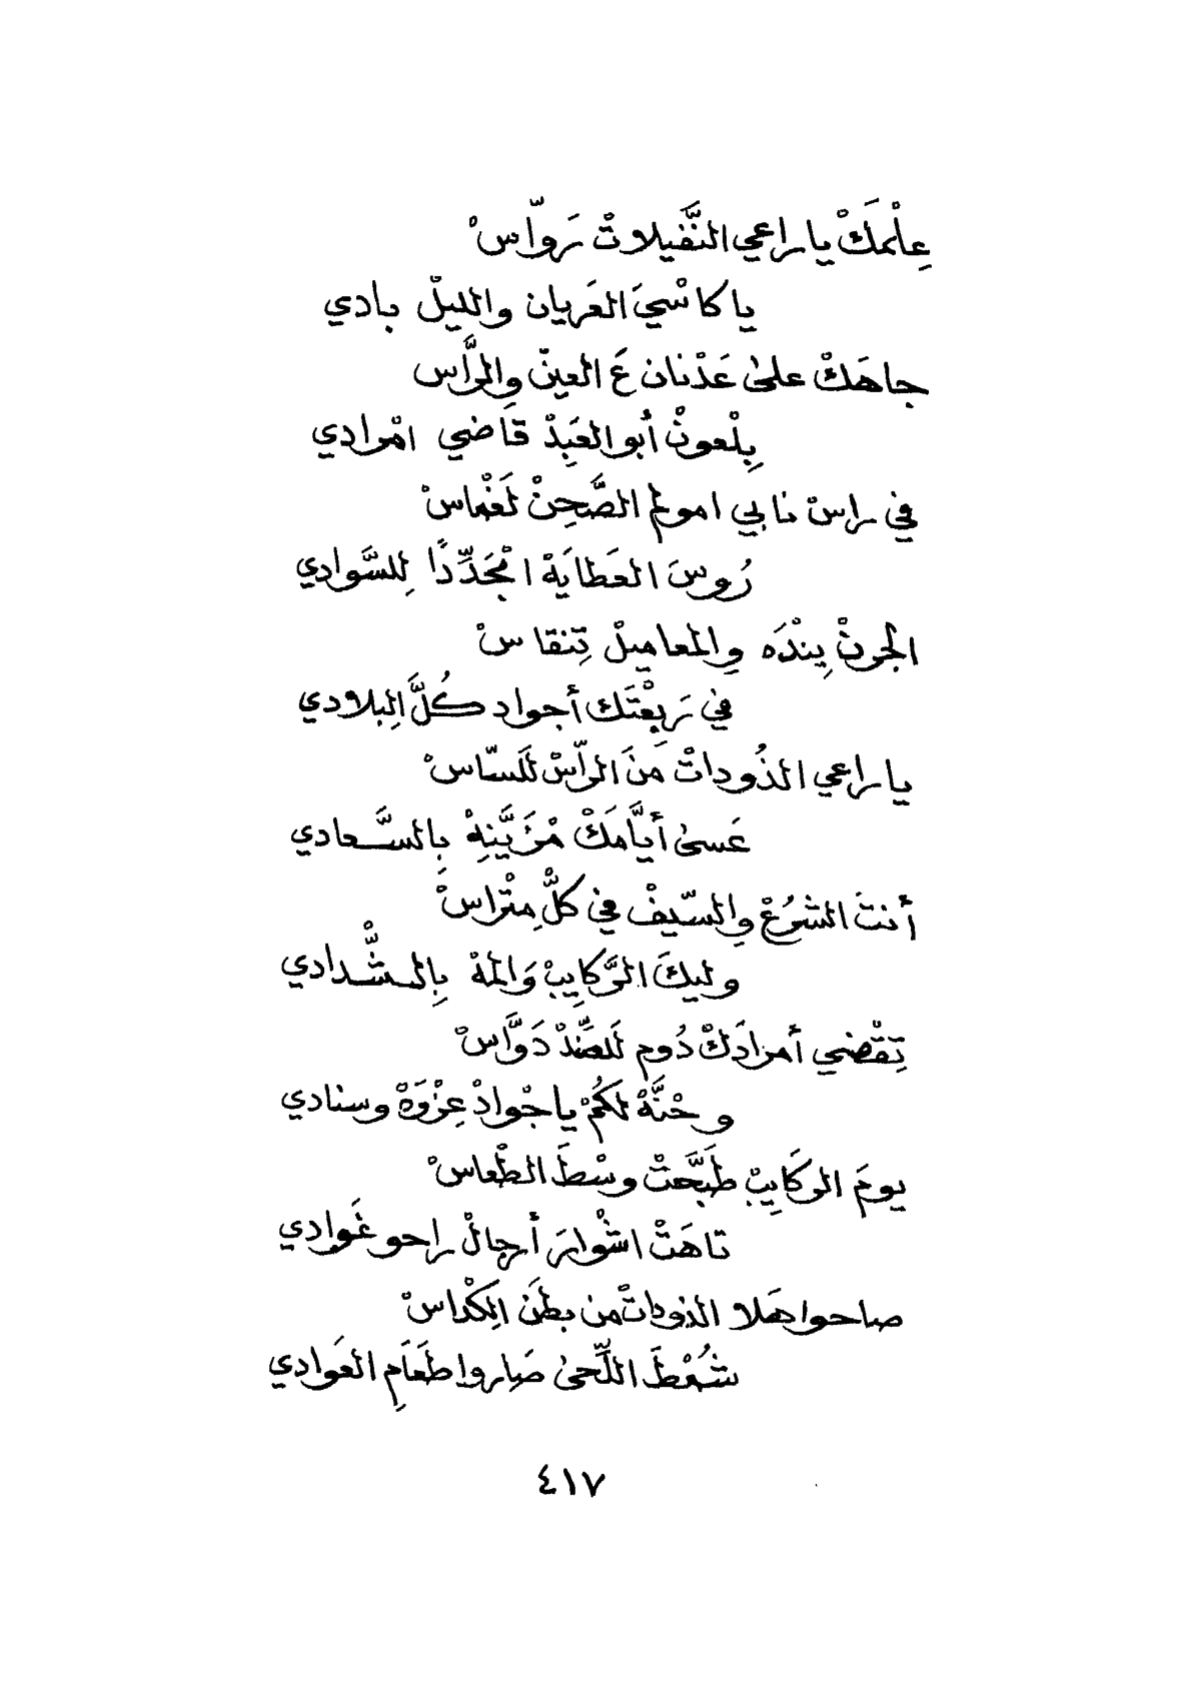 عِلْمَكْ يا راعي النَّفيلاتْ رَوّاسْ
يا كاسْيَ العَريان والليلْ بادي
جاهَكْ على عَدْنان عَ العينْ والرَّاس
بِلْعونْ أبو العَبِدْ قاضي امْرادي
في راسْ نابي امولم الصَّحِنْ لَغْماسْ
رُوسَ العَطايَهْ امْجَدِّدًا لِلسَّوادي
الجرنْ يِنْدَه والمعاميلْ تِنقاسْ
في رَبِعْتَك أجواد كُلَّ البِلادي
يا راعي الذُوداتْ مَنَ الرّاسْ لَلسّاسْ
عَسى أيَّامَكْ مْزَيَّنِهْ بِالسَّعادي
أنتَ الشرُعْ والسّيفْ في كلِّ مِتْراسْ
وليكَ الرَّكايِبْ وَالمهْ بِالشّدادي
تِقْضي أمرادَكْ دُوم لَلضِّدْ دَوَّاسْ
وحْنَّهْ لَكُمْ يا جْوادْ عِزْوَهْ وسنادي
يومَ الركَايِبْ طَبَّحَتْ وسْطَ الطْعاسْ
تاهَتْ اشْوارَ أرجالْ راحو غَوادي
صاحوا هَلا الذوداتْ من بطنَ الِكْداسْ
شُمْطَ اللّحى صَاروا طعَامِ العَوادي
٤١٧